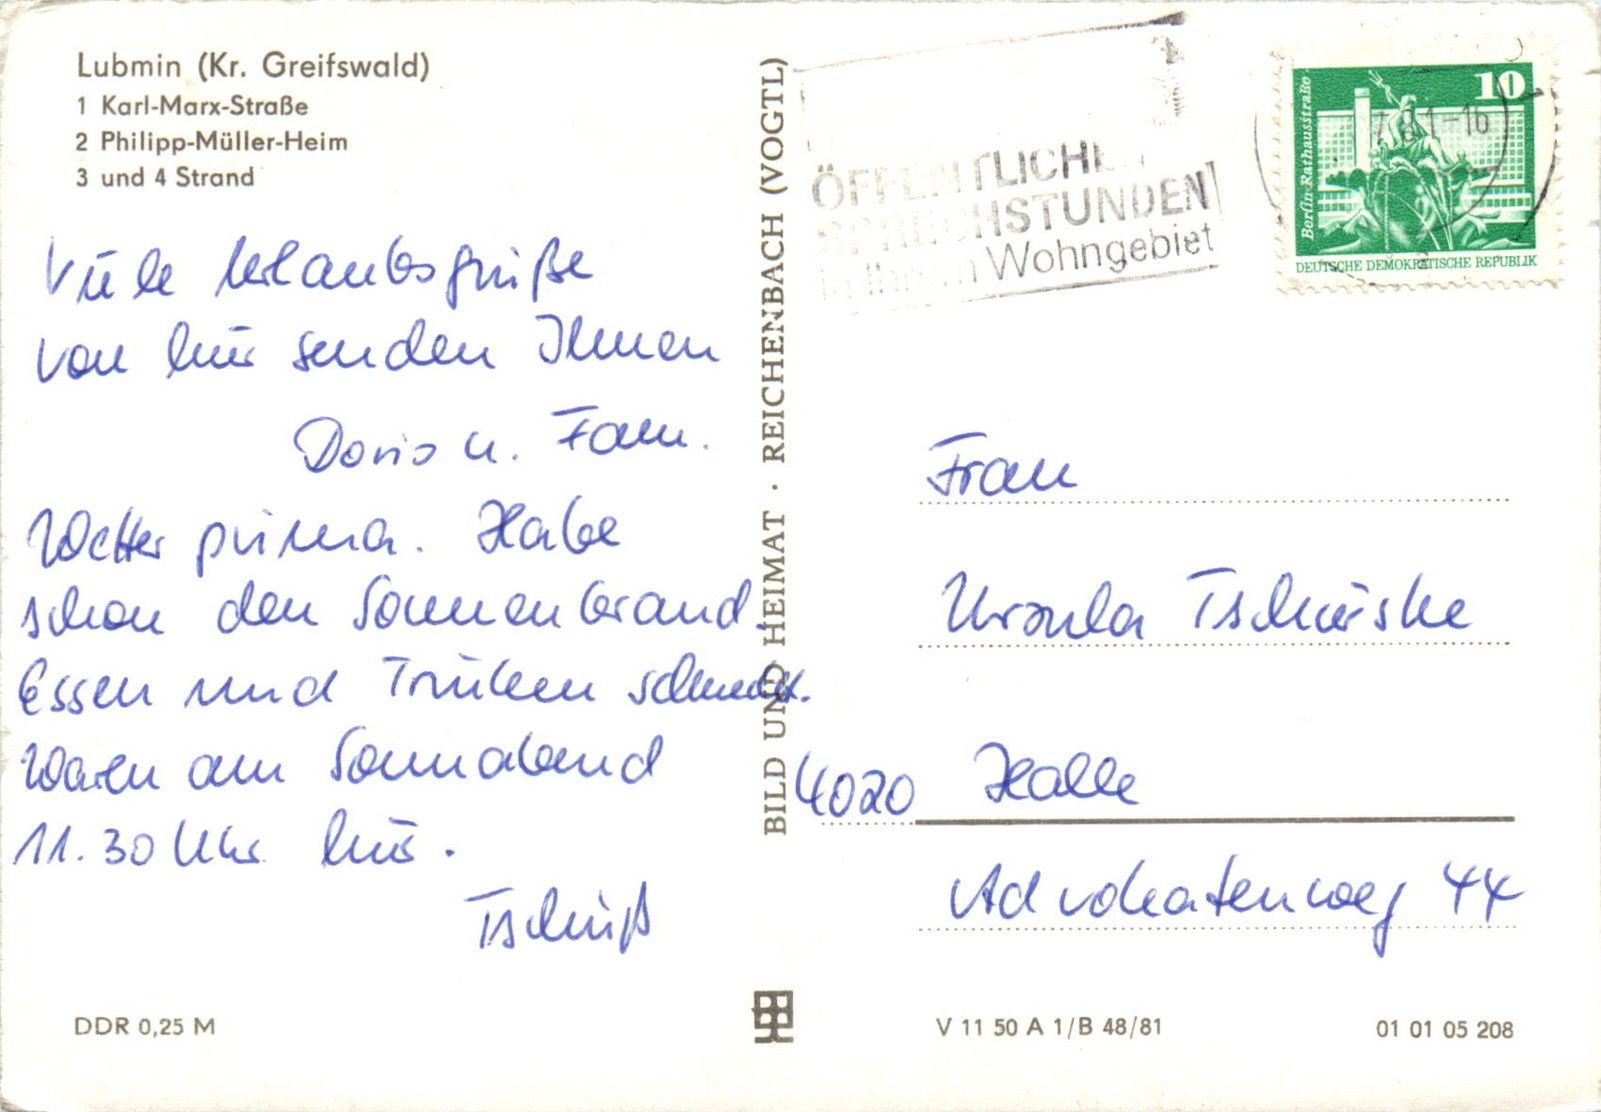 Lubmin (Kr. Greifswald)
1 Karl-Marx-Straße
2 Philipp-Müller-Heim
3 und 4 Strand
Viele Urlaubsgrüße
von hier senden Ihnen
Doris u. Fam.
Wetter prima. Habe
schon den Sonnenbrand.
Essen und Trinken schmeckt.
Waren am Sonnabend
11.30 Uhr hier.
Tschüß
DDR 0,25 M
BILD UND HEIMAT · REICHENBACH (VOGTL)
ÖFFENTLICHE
SPRECHSTUNDEN
in Ihrem Wohngebiet
10
Berlin-Rathausstraße
DEUTSCHE DEMOKRATISCHE REPUBLIK
81-16
Frau
Ursula Tschirske
4020 Halle
Advokatenweg 44
V 11 50 A 1/B 48/81
01 01 05 208